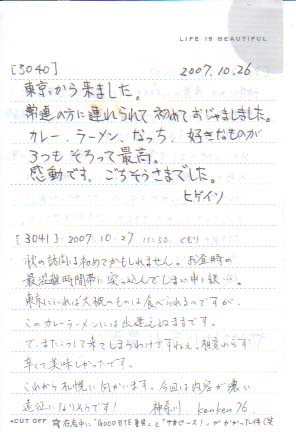 LIFE IS BEAUTIFUL
[3040] 2007.10.26
東京から来ました。
常連の方に連れられて初めておじゃましました。
カレー、ラーメン、なっち、好きなものが
3つもそろって最高。
感動です。ごちそうさまでした。
ヒゲイソ
[3041] 2007.10.27 11:50 くもり
秋の訪問は初めてかもしれません。お昼時の
最混雑時間帯に突っ込んでしまい申し訳
東京にいれば大概のものは食べられるのですが、
このカレーラーメンには出逢えぬままです。
で、またこうして来てしまうわけですねぇ。相変わらず
辛くて美味しかったです。
これから札幌に向かいます。今回は内容が濃い
遠征になりそうです! 神奈川 kenken76
CUT OFF 滞在中に"GOODBYE夏男"と"サマーピース!"がかかった件(笑